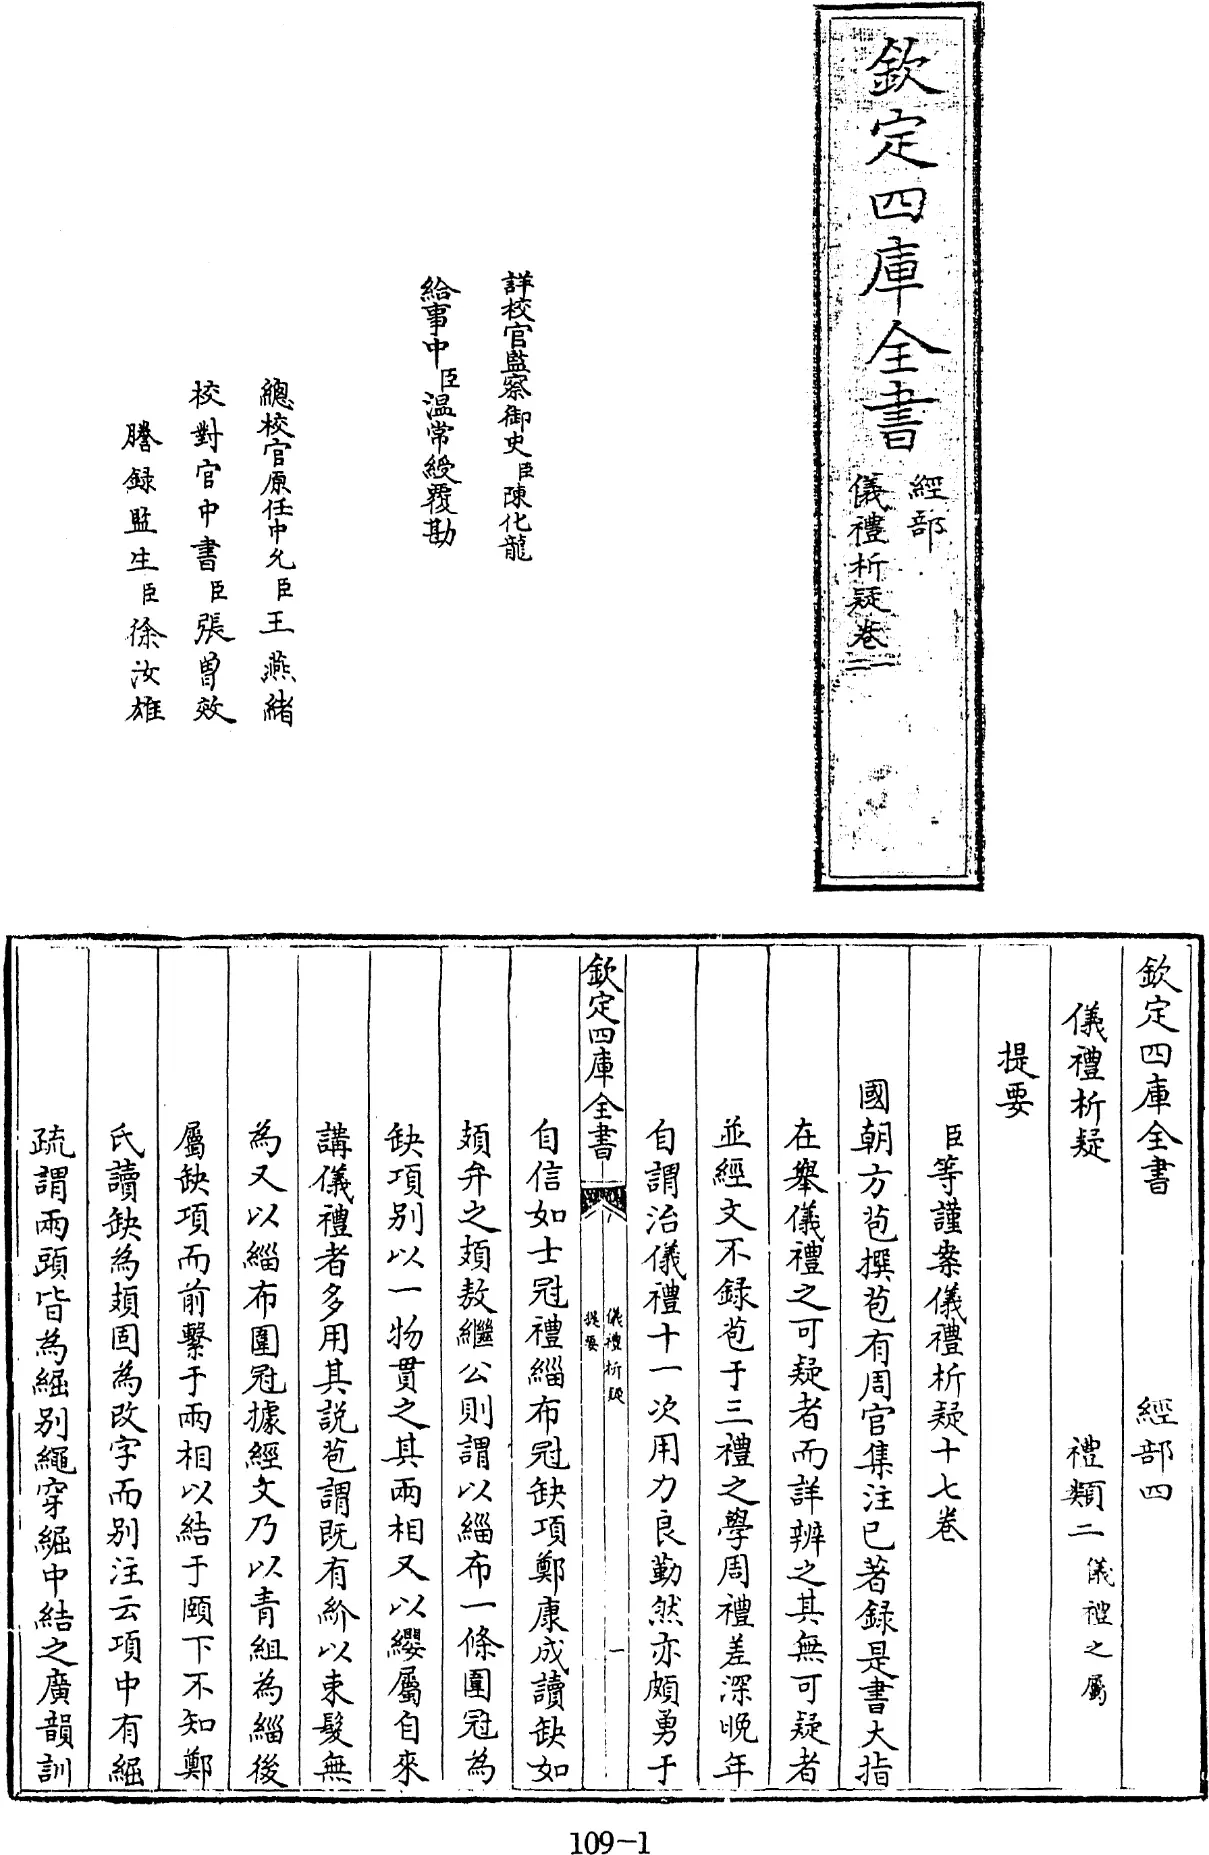 欽定四庫全書
經部
儀禮析疑卷一二
詳校官監察御史臣陳化龍
給事中臣温常綬覆勘
總校官原任中允臣王燕緒
校對官中書臣張曾效
謄録監生臣徐汝雄
欽定四庫全書 經部四
儀禮析疑 禮類二儀禮之屬
提要
臣等謹案儀禮析疑十七卷
國朝方苞撰苞有周官集注已著録是書大指
在舉儀禮之可疑者而詳辨之其無可疑者
並經文不録苞于三禮之學周禮差深晚年
自謂治儀禮十一次用力良勤然亦頗勇于
欽定四庫全書
儀禮析疑
提要
一
自信如士冠禮緇布冠缺項鄭康成讀缺如
頍弁之頍敖繼公則謂以緇布一條圍冠為
缺項别以一物貫之其兩相又以纓屬自來
講儀禮者多用其説苞謂既有紒以束髮無
為又以緇布圍冠據經文乃以青組為緇後
屬缺項而前繫于兩相以結于頤下不知鄭
氏讀缺為頍固為改字而别注云項中有䋿
疏謂兩頭皆為䋿别繩穿䋿中結之廣韻訓
109-1